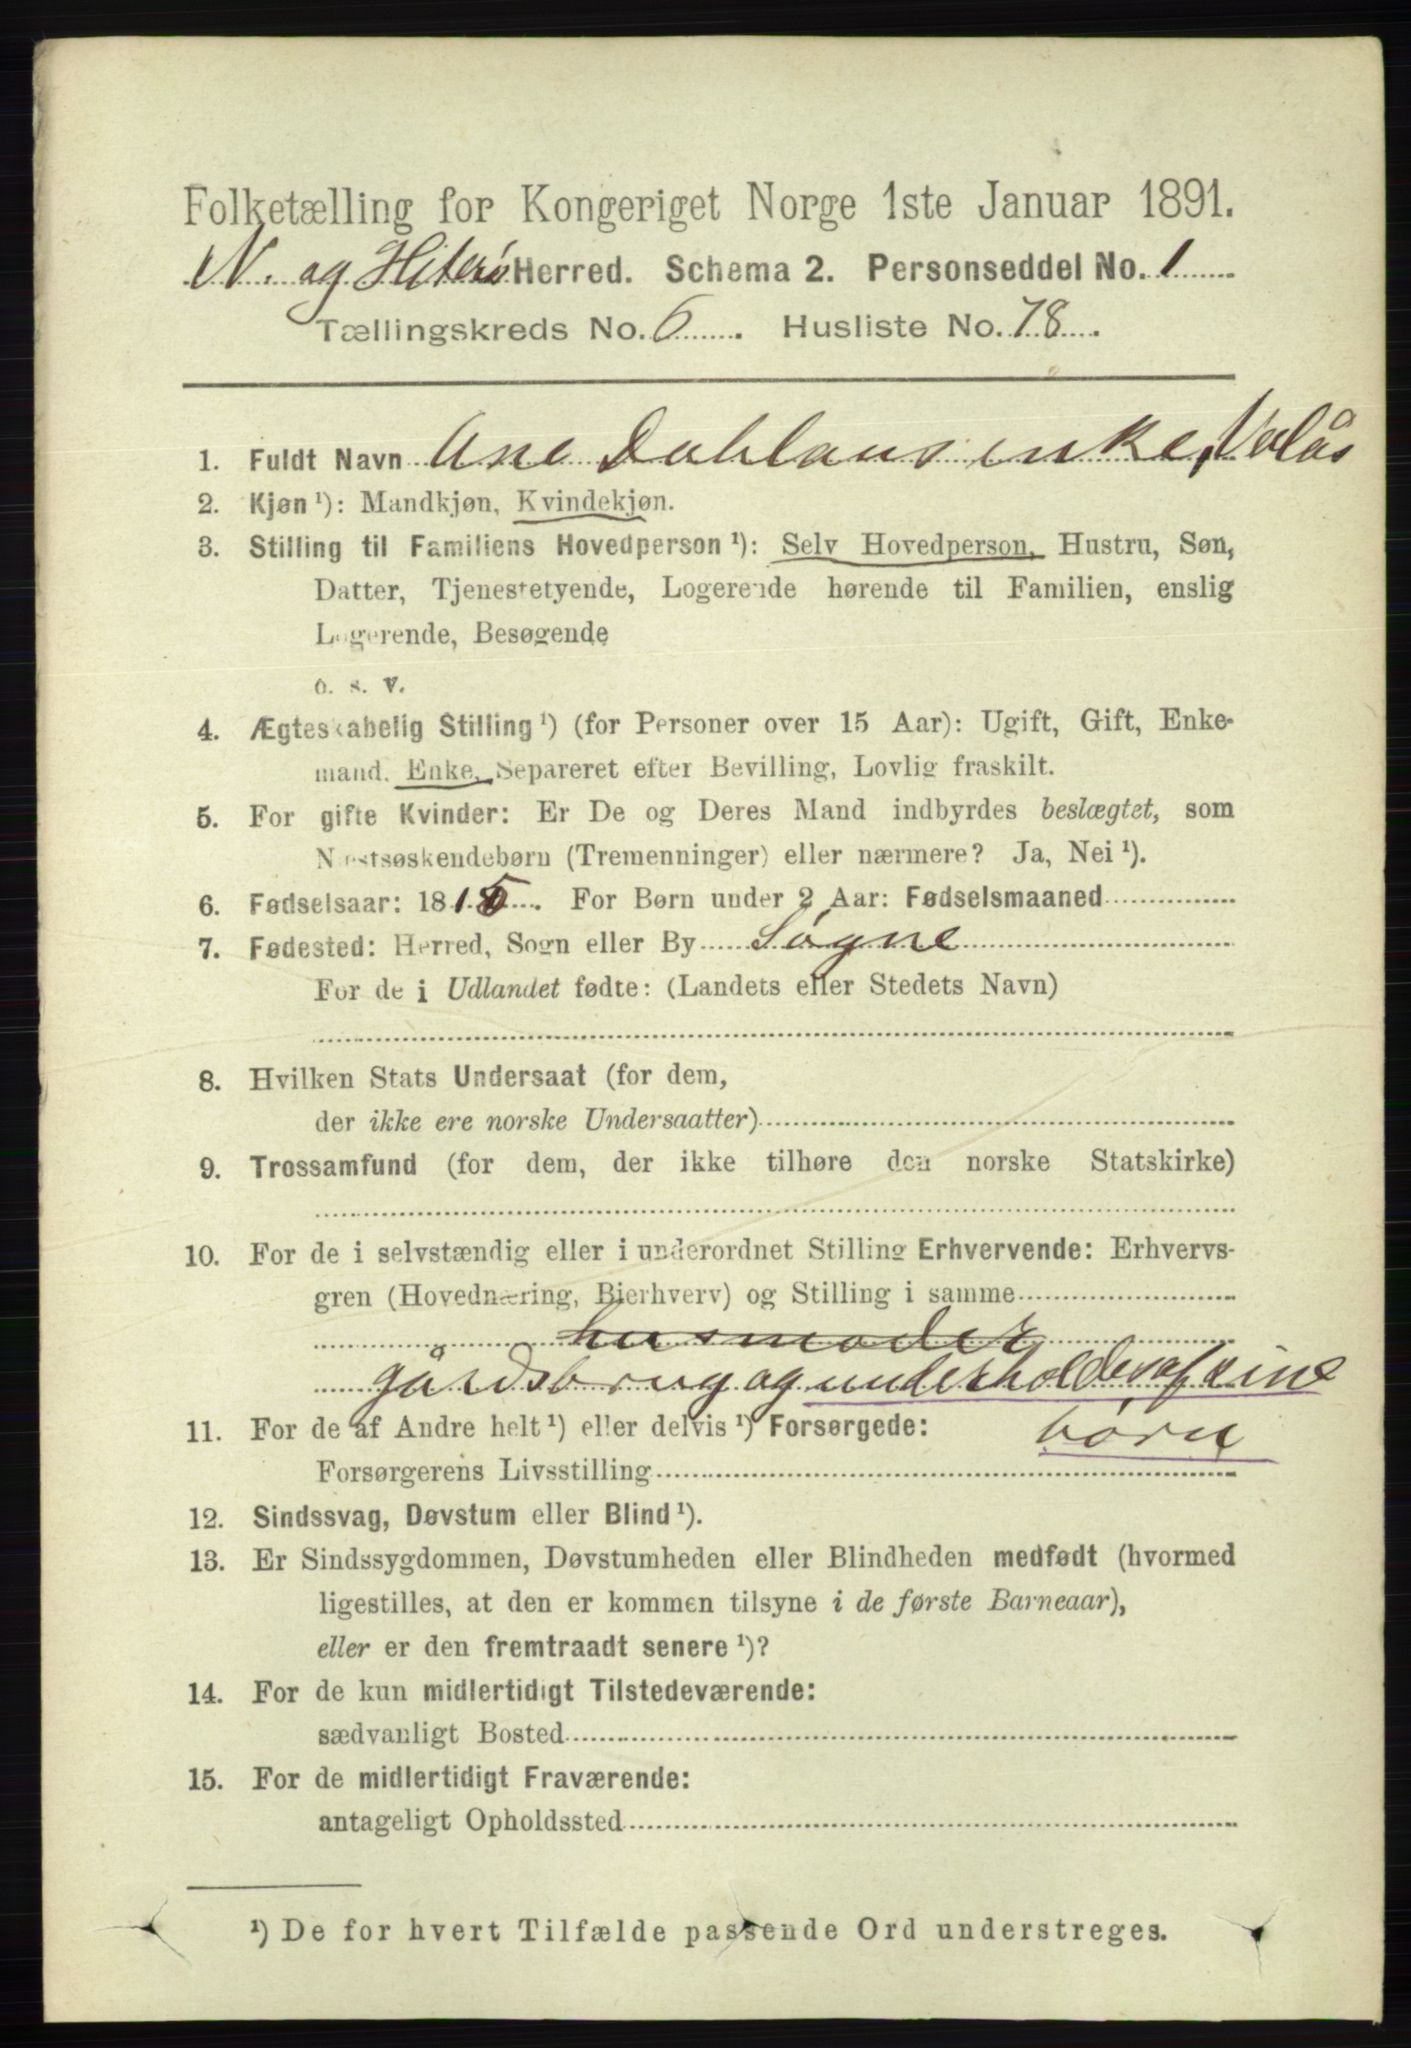 Folketælling for Kongeriget Norge 1ste Januar 1891.
N. og Hiterø Herred. Schema 2. Personseddel No. 1
Tællingskreds No. 6. Husliste No. 78.
1. Fuldt Navn Ane Dahlaus enke, Valås
2. Kjøn ¹): Mandkjøn, Kvindekjøn.
3. Stilling til Familiens Hovedperson ¹): Selv Hovedperson, Hustru, Søn,
Datter, Tjenestetyende, Logerende hørende til Familien, enslig
Logerende, Besøgende
o. s. v.
4. Ægteskabelig Stilling ¹) (for Personer over 15 Aar): Ugift, Gift, Enke-
mand, Enke, Separeret efter Bevilling, Lovlig fraskilt.
5. For gifte Kvinder: Er De og Deres Mand indbyrdes beslægtet, som
Næstsøskendebørn (Tremenninger) eller nærmere? Ja, Nei ¹).
6. Fødselsaar: 1815. For Børn under 2 Aar: Fødselsmaaned
7. Fødested: Herred, Sogn eller By Søgne
For de i Udlandet fødte: (Landets eller Stedets Navn)
8. Hvilken Stats Undersaat (for dem,
der ikke ere norske Undersaatter)
9. Trossamfund (for dem, der ikke tilhøre den norske Statskirke)
10. For de i selvstændig eller i underordnet Stilling Erhvervende: Erhvervs-
gren (Hovednæring, Bierhverv) og Stilling i samme
husmoder
gårdsbrug og underholdes af sine
børn
11. For de af Andre helt ¹) eller delvis ¹) Forsørgede:
Forsørgerens Livsstilling
12. Sindssvag, Døvstum eller Blind ¹).
13. Er Sindssygdommen, Døvstumheden eller Blindheden medfødt (hvormed
ligestilles, at den er kommen tilsyne i de første Barneaar),
eller er den fremtraadt senere ¹)?
14. For de kun midlertidigt Tilstedeværende:
sædvanligt Bosted
15. For de midlertidigt Fraværende:
antageligt Opholdssted
¹) De for hvert Tilfælde passende Ord understreges.